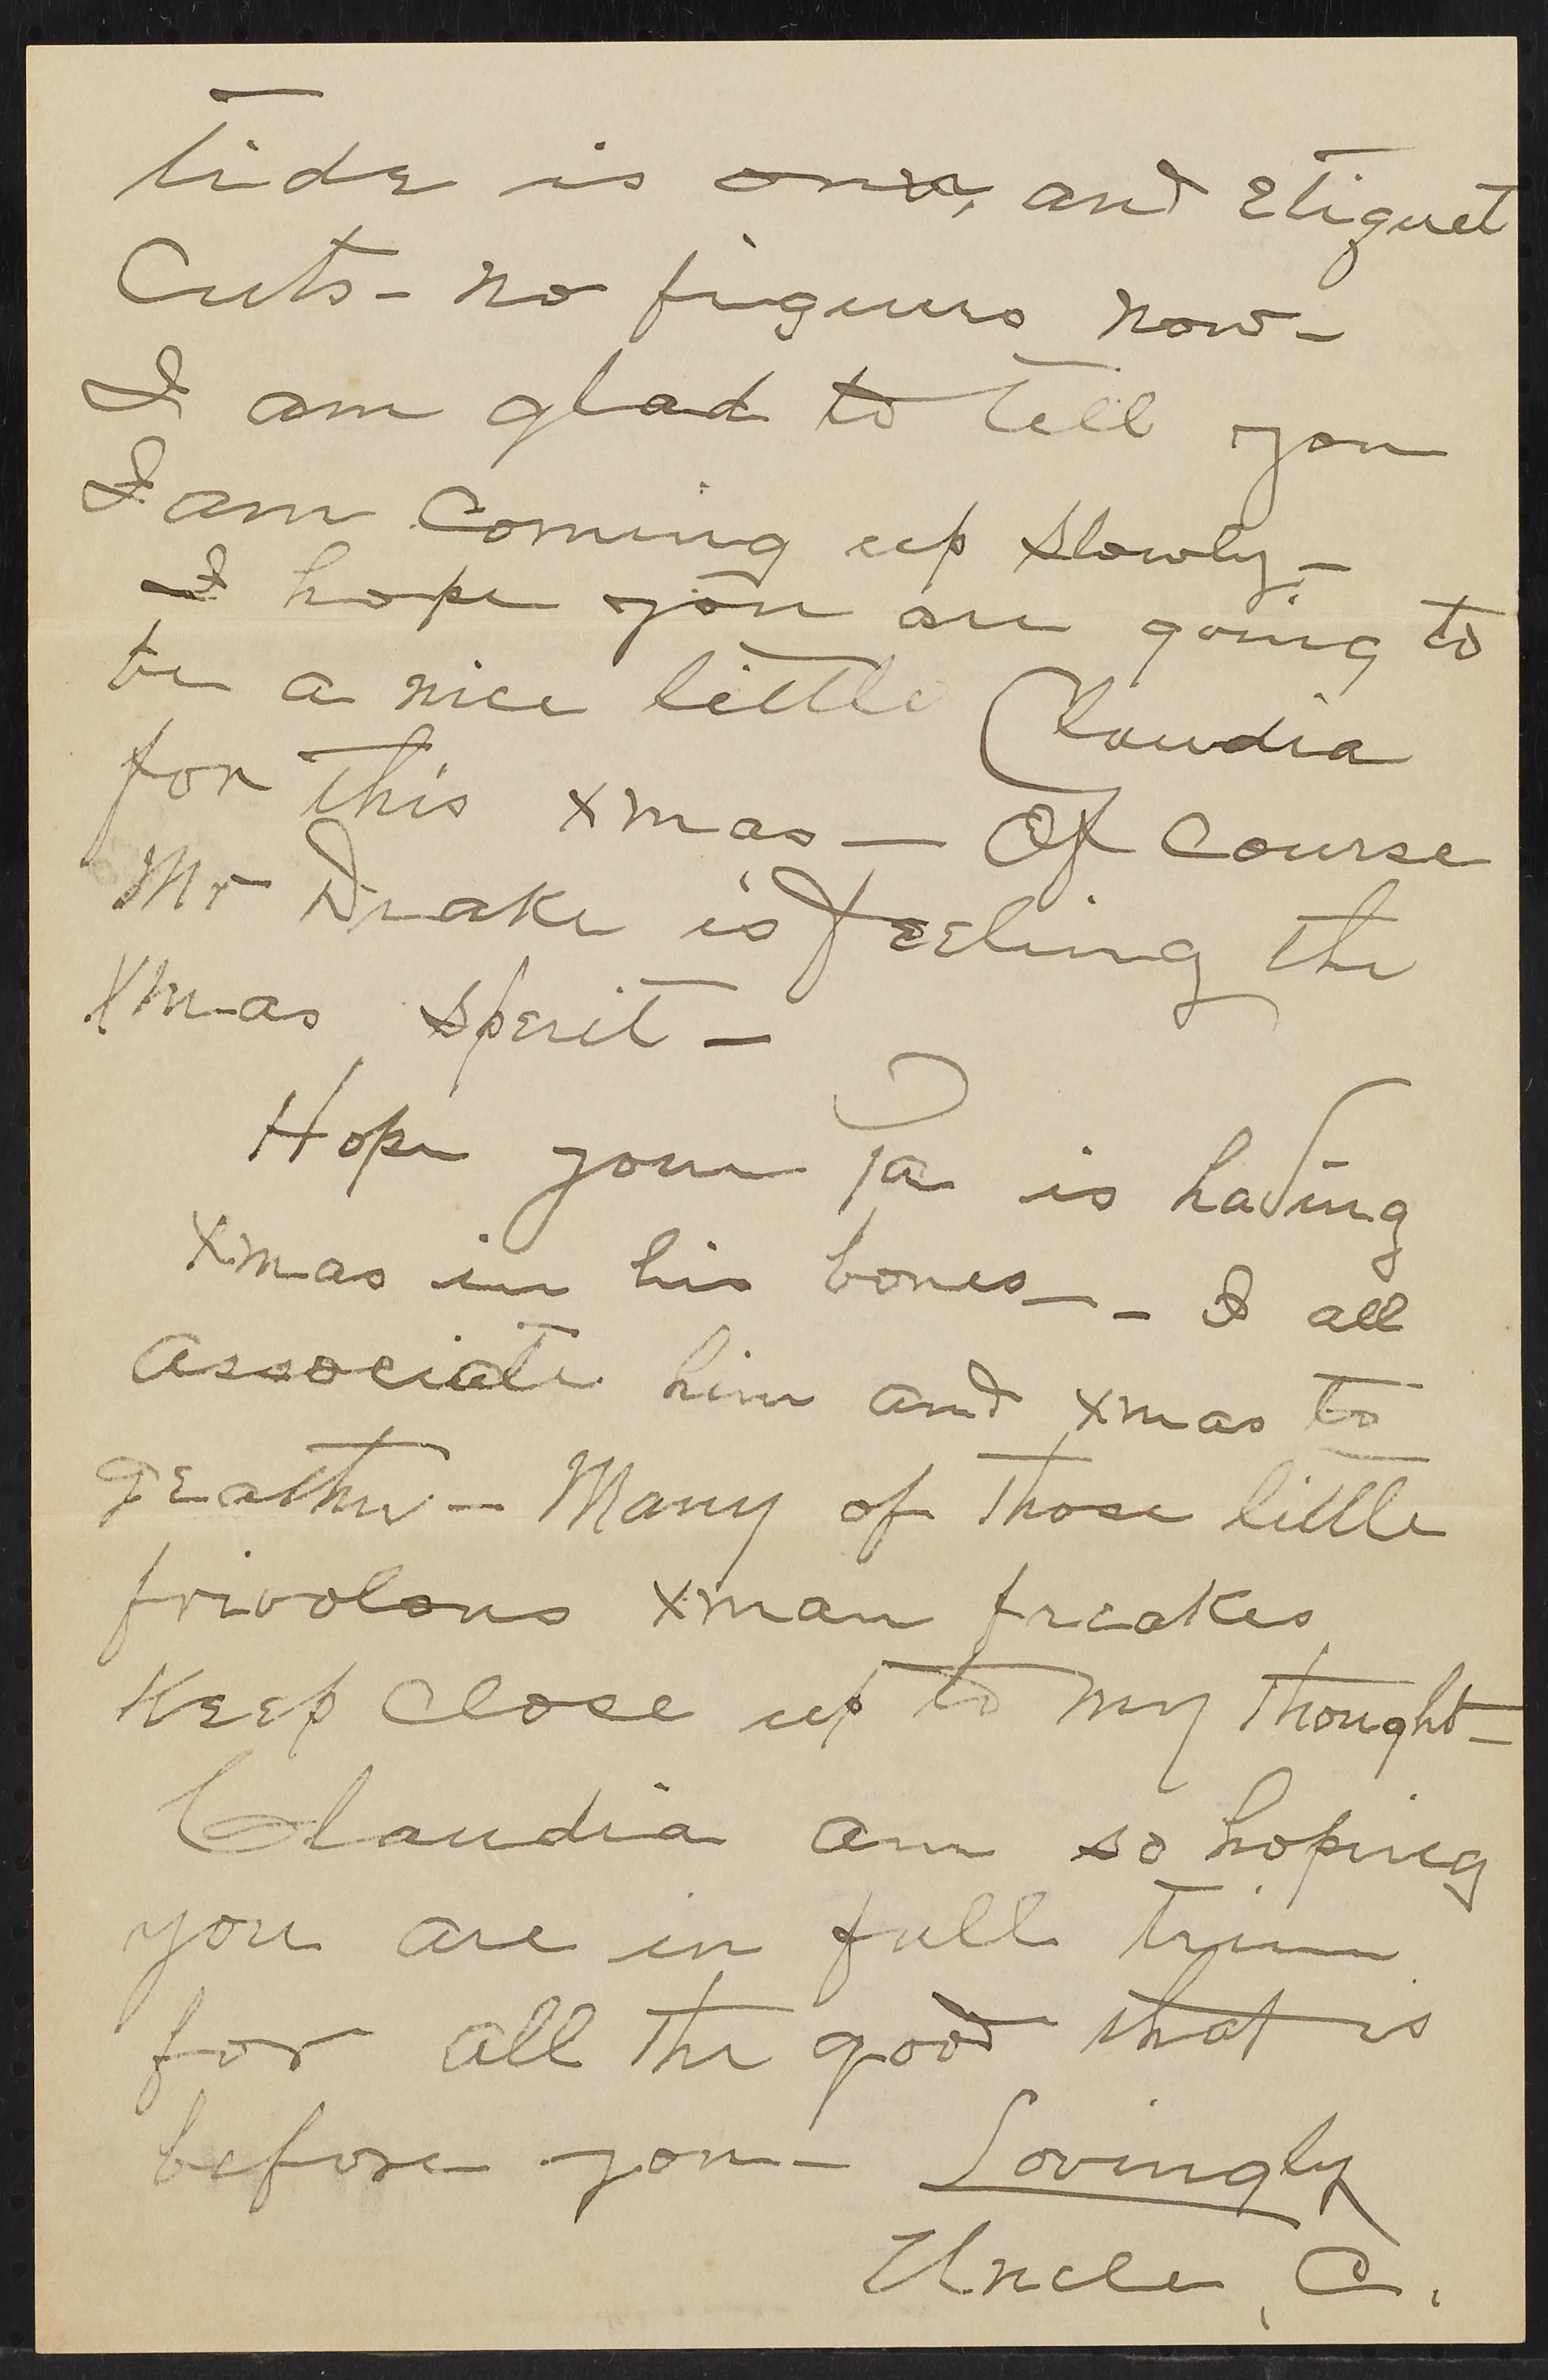 tide is onn, and Etiquet
Cuts - no figuers now -
I am glad to tell you
I am coming up slowly -
I hope you are going to
be a nice little Claudia
for this xmas - Of course
Mr Drake is feeling the
Xmas sperit -
Hope your Pa is having
xmas in his bones - - I all
associate him and xmas to
geather - Many of those little
frivolous xman freakes
Keep close up to my thought -
Claudia am so hoping
you are in full trim
for all the good that is
before you - Lovingly
Uncle, C.